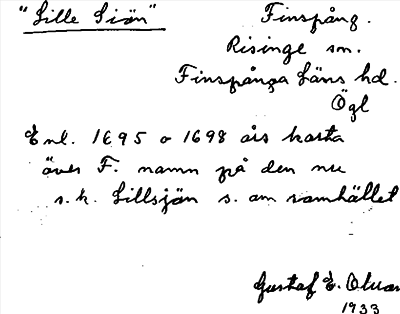 "Lille Siön"
Finspång.
Risinge sn.
Finspånga Läns hd.
Ögl
Enl. 1695 o 1698 års karta
över F. namn på den nu
s.k. Lillsjön s. om samhället
Gustaf E.
1933